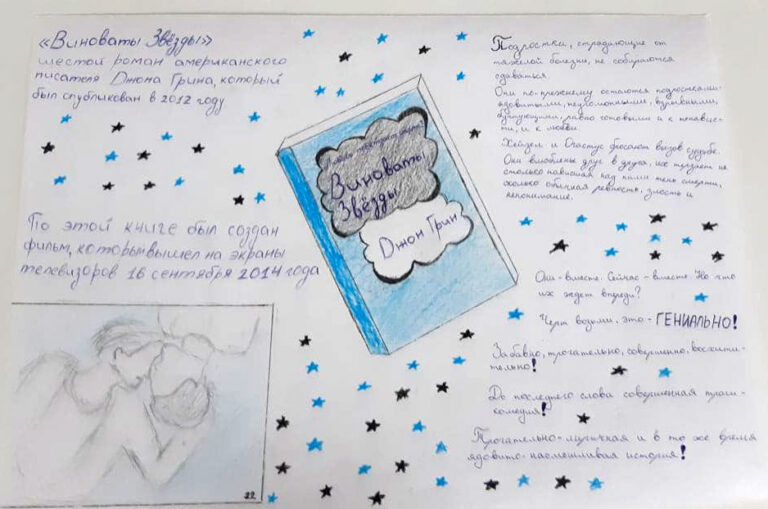 «Виноваты Звёзды»
шестой роман американского
писателя Джона Грина, который
был опубликован в 2012 году.
По этой книге был создан
фильм, которыйвышел на экраны
телевизоров 16 сентября 2014 года
22
Виноваты
Звёзды
Джон Грин
Подростки, страдающие от
тяжелой болезни, не собираются
сдаваться.
Они по-прежнему остаются подростками-
ядовитыми, неугомонными, взрывными,
бунтующими, равно готовыми и к ненавис-
ти, и к любви.
Хейзел и Огастус бросают вызов судьбе.
Они влюблены друг в друга, их терзает не
столько нависшая над ними тень смерти,
сколько обычная ревность, злость и
непонимание.
Они - вместе. Сейчас - вместе. Но что
их ждет впереди?
Черт возьми, это - ГЕНИАЛЬНО!
Забавно, трогательно, совершенно, восхити-
тельно!
До последнего слова совершенная траги-
комедия!
Трогательно-лиричная и в то же время
ядовито-насмешливая история!